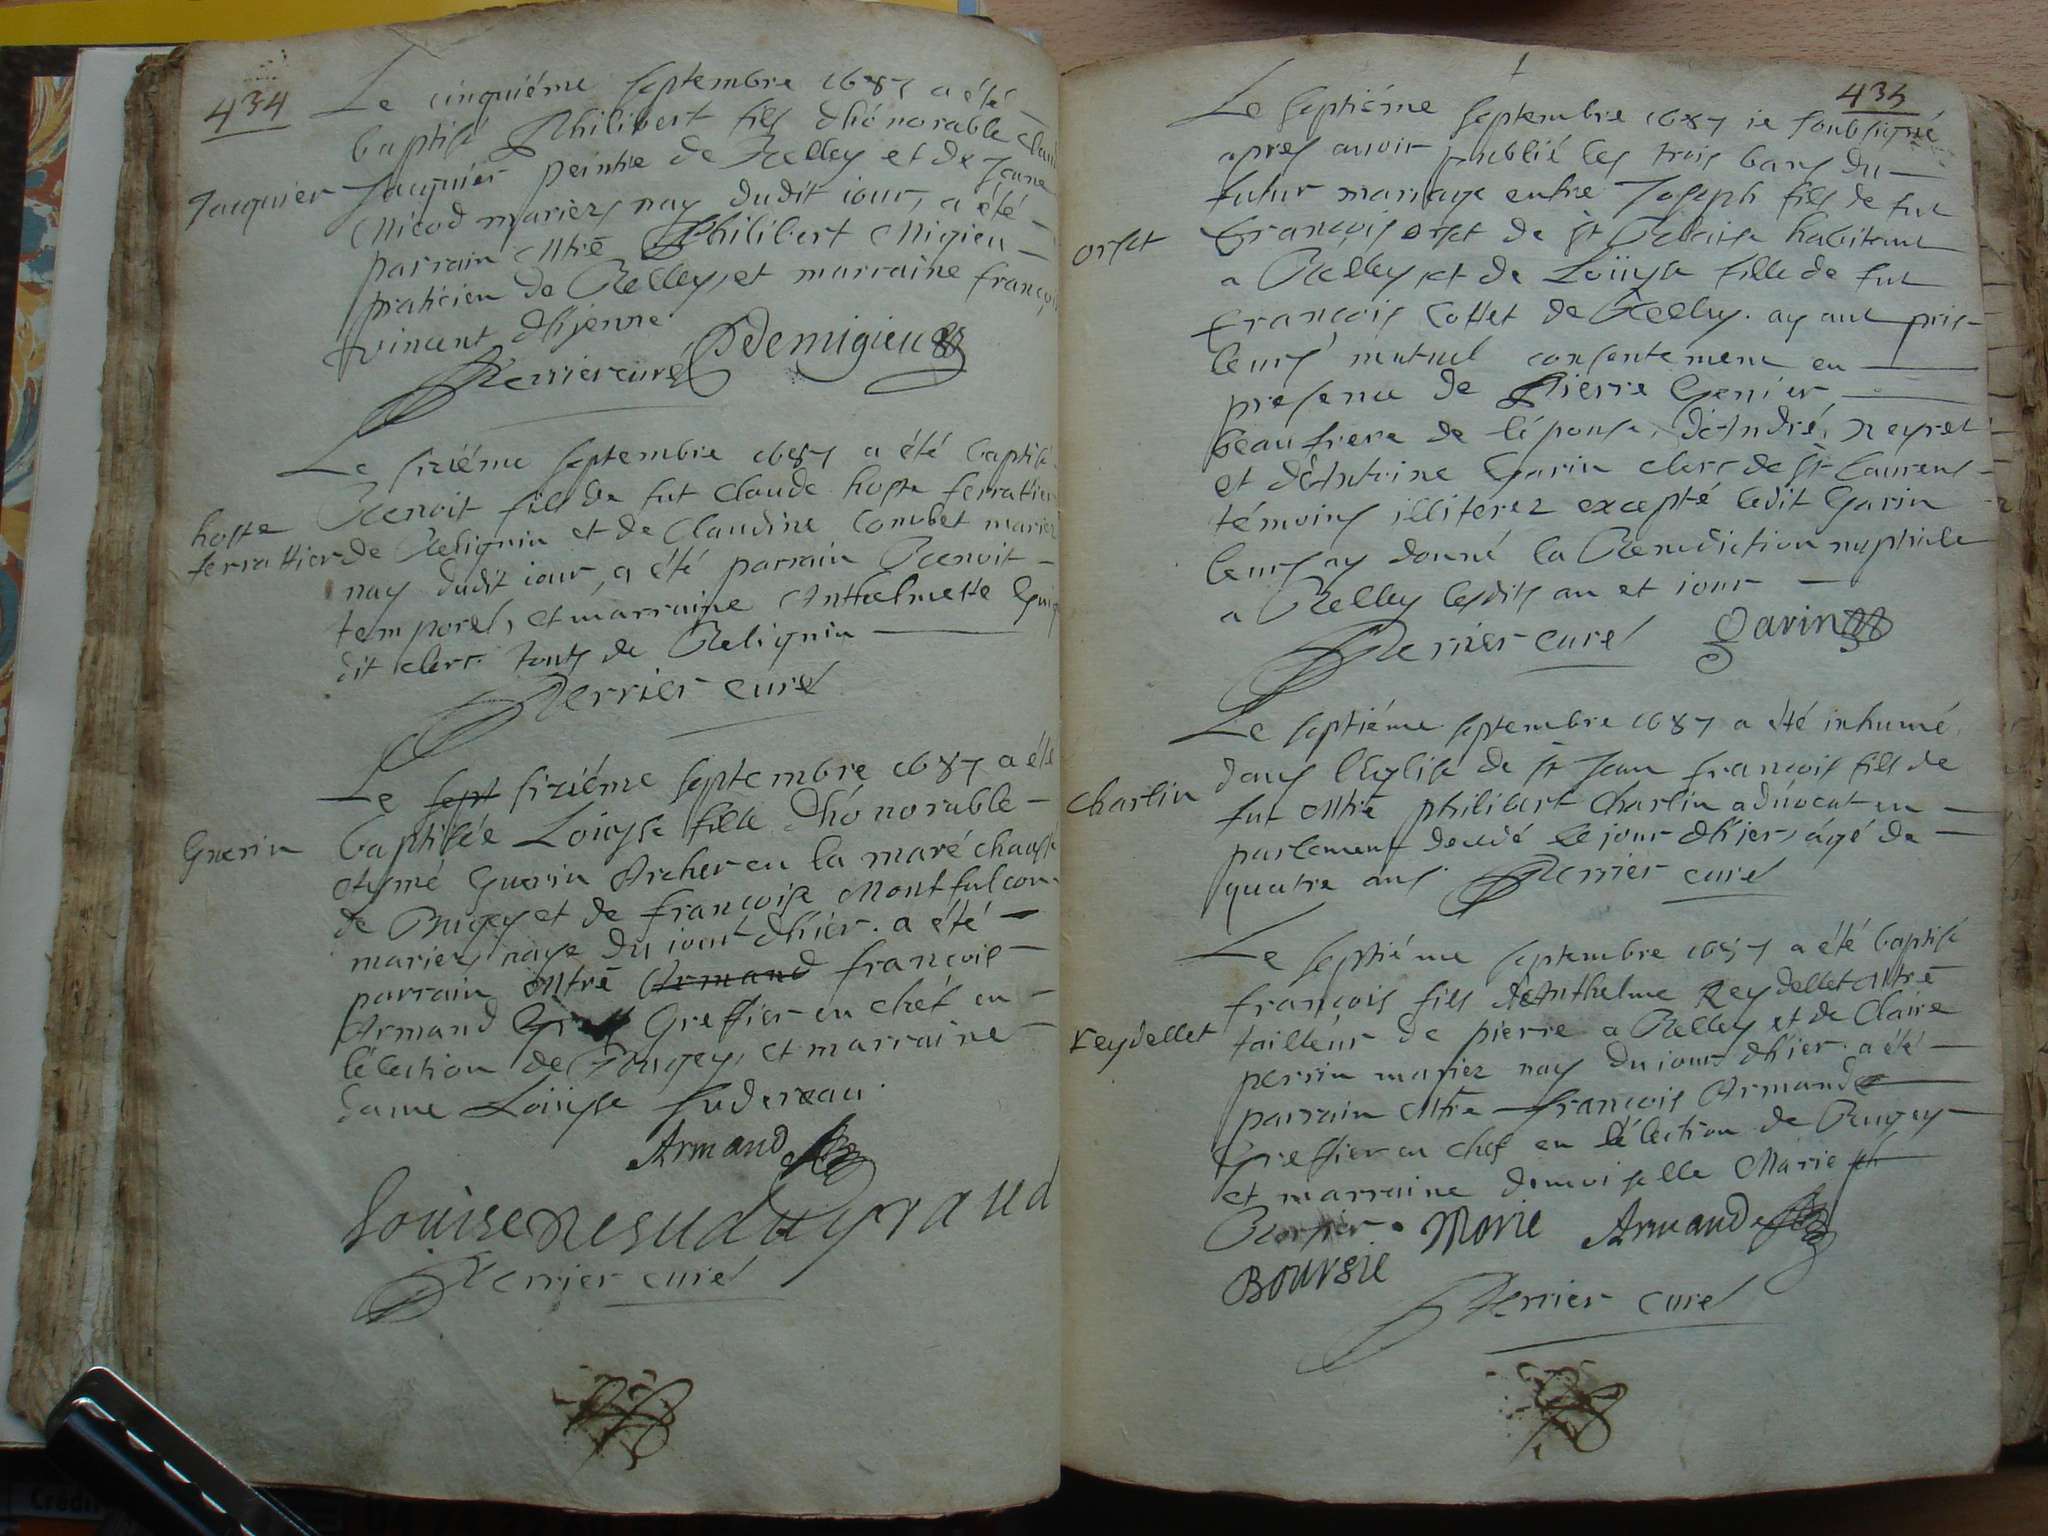 434
Le cinquiéme septembre 1687 a été
baptisé Philibert fils d'hónorable Claud
Jacquier
Jacquier peintre de Belley et de Jeane
Nicod mariez nay dudit iour, a été
parrain Mtre Philibert Migieu
praticien de Belley, et marraine françoi
vincent d'hyenne
Perrier curé Demigieu
Le siziéme septembre 1687 a été baptisé
Benoit fils de fut Claude hoste ferrattier
hoste
ferrattier
de Belignin et de Claudine Combet mariez
nay dudit iour, a été parrain Benoit
temporel, et marraine Anthelmette Gui
dit clerc touts de Belignin
Perrier curé
Le sept siziéme septembre 1687 a été
baptisée Loüyse fille d'hónorable
Guerin
Aymé Guerin Archer en la maréchaussé
de Bugey et de françoise Montfalcon
mariez naye du iour d'hier. a été
parrain Mtre Armand françois
Armand Greffier en chef en
l'élection de Bugey, et marraine
dame Loüyse sudereau
Armand
Louise
Perrier curé
435
Le septiéme septembre 1687 ie soubsigné
apres auoir publié les trois bans du
futur mariage entre Joseph fils de fut
orset
françois orset de st Blaise habitant
a Belley et de Loüyse fille de fut
françois Cottet de Belley. ay ant pris
leurs mutuel consentement en
presence de Pierre Genier
beaufrere de l'épouse, d'André, neyret
et d'Antoine Garin clerc de st Laurens
témoins illiterez excepté ledit Garin
leurs ay donné la Benediction nuptiale
a Belley lesdits an et iour
Perrier curé Garin
Le septiéme septembre 1687 a été inhumé
dans l'Eglise de st Jean françois fils de
charlin
fut Mtre philibert Charlin aduocat en
parlement decedé le jour d'hier, agé de
quatre ans. Perrier curé
Le septiéme septembre 1687 a été baptisé
françois fils d'Anthelme Reydellet Mtre
reydellet
tailleur de pierre a Belley et de Claire
perrin mariez nay du iour d'hier. a été
parrain Mtre françois Armand
Greffier en chef en l'élection de Bugey
et marraine demoiselle Marie
Morie Armand
Boursie
Perrier curé